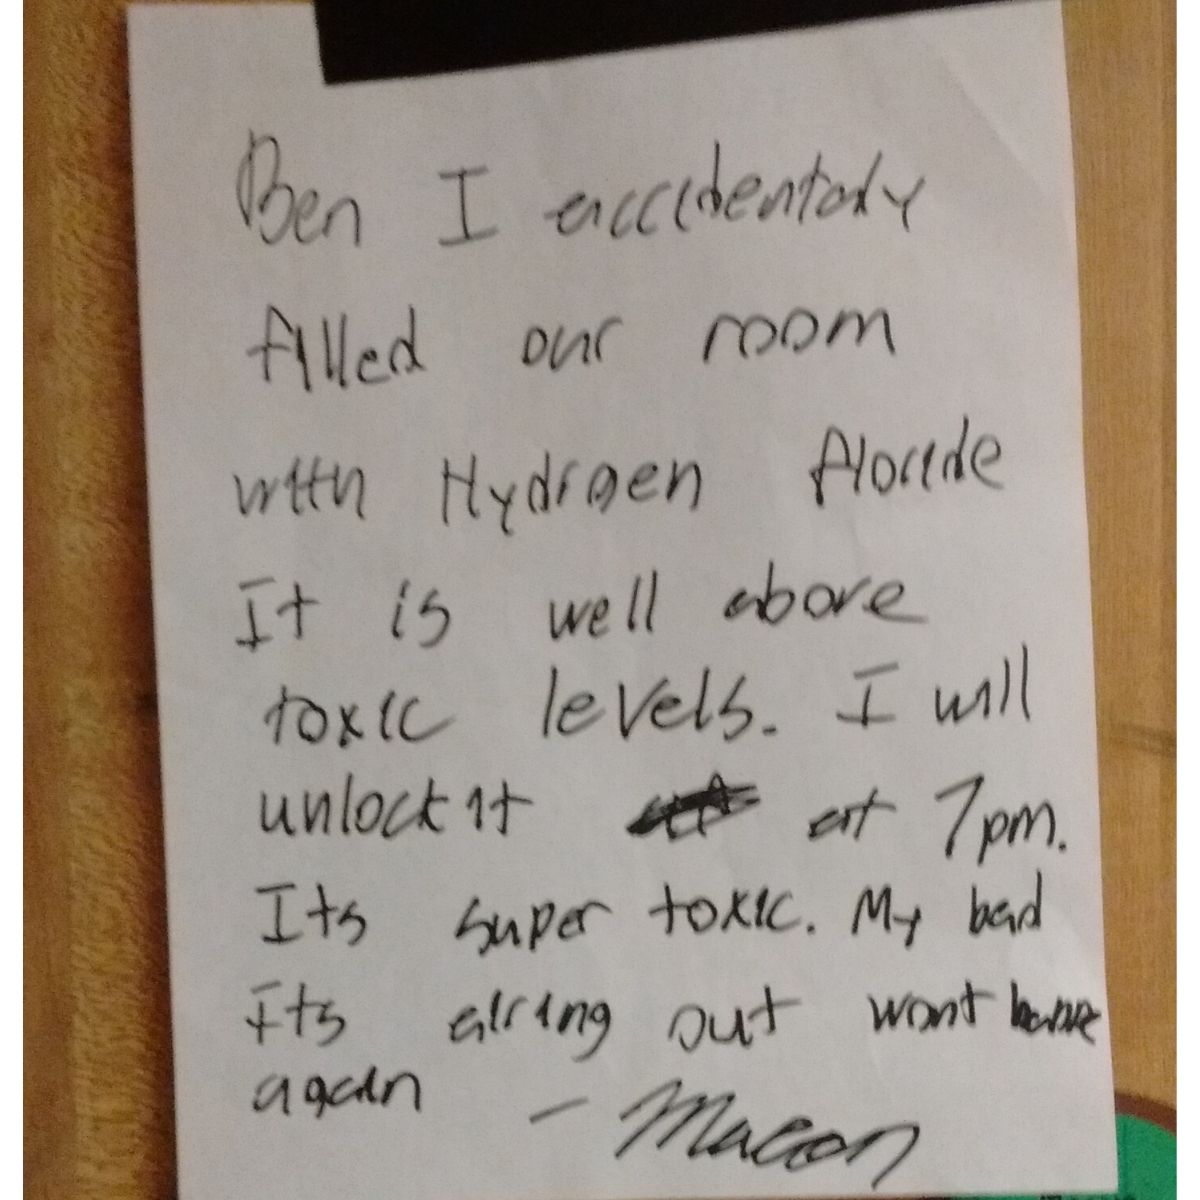 Ben I accidentaly
filled our room
with Hydrogen floride
It is well above
toxic levels. I will
unlock it at 7pm.
Its super toxic. My bad
Its airing out wont
again - Macon